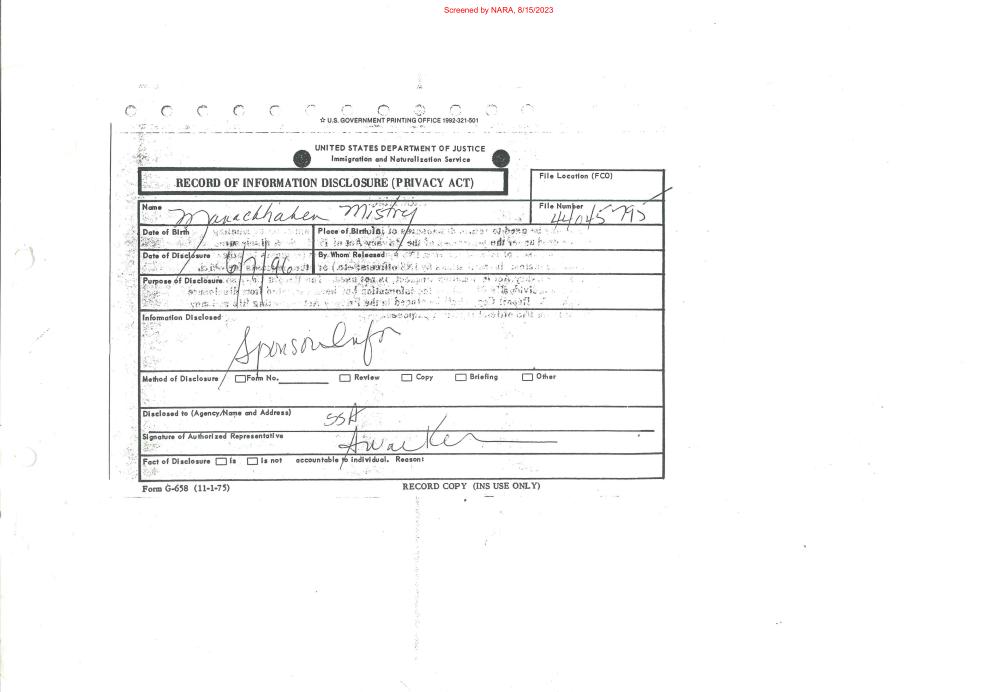 Screened by NARA, 8/15/2023
☆ U.S. GOVERNMENT PRINTING OFFICE 1992-321-501
UNITED STATES DEPARTMENT OF JUSTICE
Immigration and Naturalization Service
RECORD OF INFORMATION DISCLOSURE (PRIVACY ACT)
File Location (FCO)
Name Manachhaben Mistry
File Number 44045795
Date of Birth
Place of Birth
Date of Disclosure 6/7/96
By Whom Released
Purpose of Disclosure
Information Disclosed
Sponsor Info
Method of Disclosure Form No. Review Copy Briefing Other
Disclosed to (Agency/Name and Address) SSA
Signature of Authorized Representative
Fact of Disclosure is is not accountable to individual. Reason:
Form G-658 (11-1-75)
RECORD COPY (INS USE ONLY)